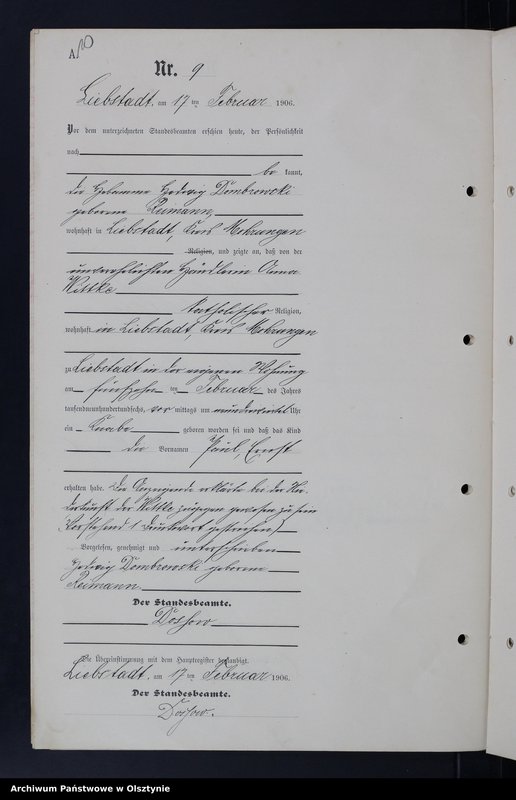 A 10
Nr. 9
Liebstadt, am 17 ten Februar 1906.
Vor dem unterzeichneten Standesbeamten erschien heute, der Persönlichkeit
nach
be kannt,
die Hebamme Hedwig Dombrowski
geborene Reimann,
wohnhaft in Liebstadt, Kreis Mohrungen
Religion, und zeigte an, daß von der
unverehelichten Händlerin Anna
Wittke
katholischer Religion,
wohnhaft in Liebstadt, Kreis Mohrungen
zu Liebstadt in der eigenen Wohnung
am fünfzehn ten Februar des Jahres
tausendneunhundertundsechs, vor mittags um Uhr
ein Knabe geboren worden sei und daß das Kind
die Vornamen Paul, Ernst
erhalten habe. Die Anzeigende erklärte bei der Nie-
derkunft der Wittke zugegen gewesen zu sein
(Vorstehend 1 Druckwort gestrichen)
Vorgelesen, genehmigt und unterschrieben
Hedwig Dombrowski geborene
Reimann
Der Standesbeamte.
Dossow
Die Übereinstimmung mit dem Hauptregister beglaubigt.
Liebstadt, am 17 ten Februar 1906.
Der Standesbeamte.
Dossow.
Archiwum Państwowe w Olsztynie